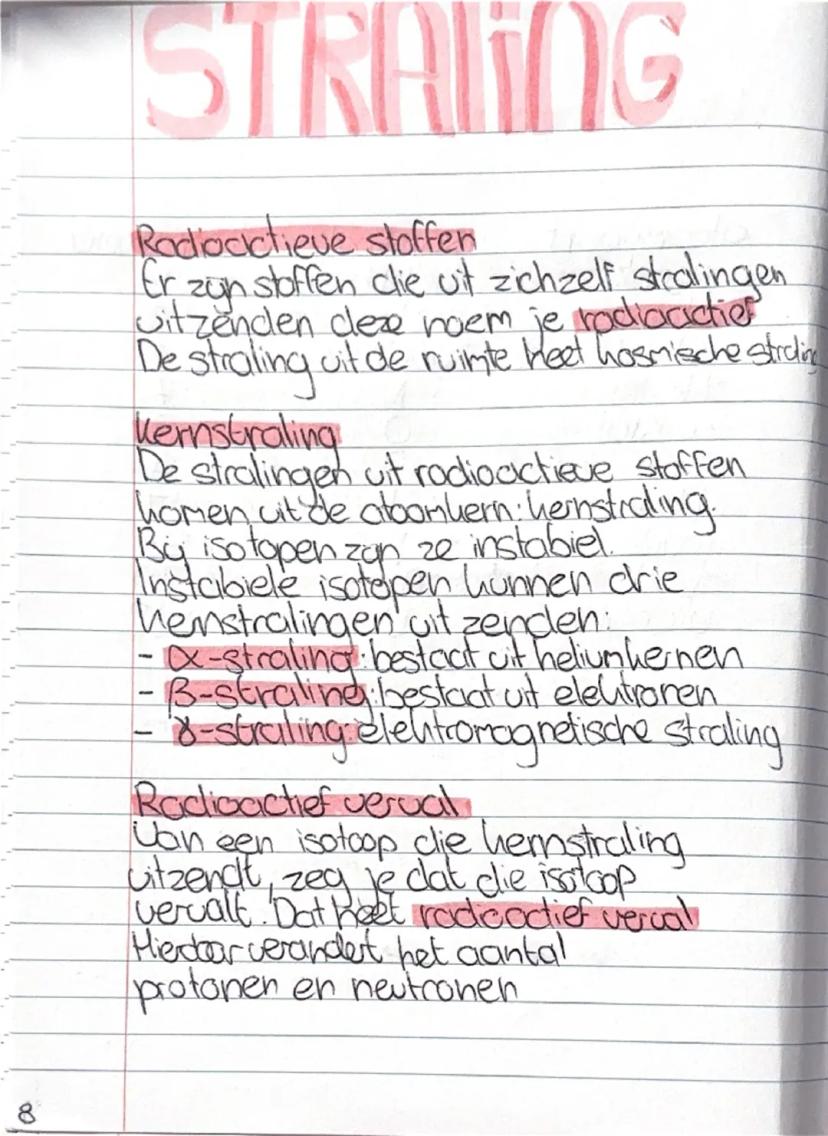 STRALiNG
Radioactieve stoffen
Er zijn stoffen die uit zichzelf stralingen
uitzenden deze noem je radioactief
De straling uit de ruimte heet kosmische straling
Kernstraling
De stralingen uit radioactieve stoffen
komen uit de atoomkern: kernstraling.
Bij isotopen zijn ze instabiel.
Instabiele isotopen kunnen drie
kernstralingen uit zenden:
- α-straling: bestaat uit heliumkernen
- β-straling: bestaat uit elektronen
- γ-straling: elektromagnetische straling
Radioactief verval
Van een isotoop die kernstraling
uitzendt, zeg je dat die isotoop
vervalt. Dat heet radioactief verval
Hierdoor verandert het aantal
protonen en neutronen
8